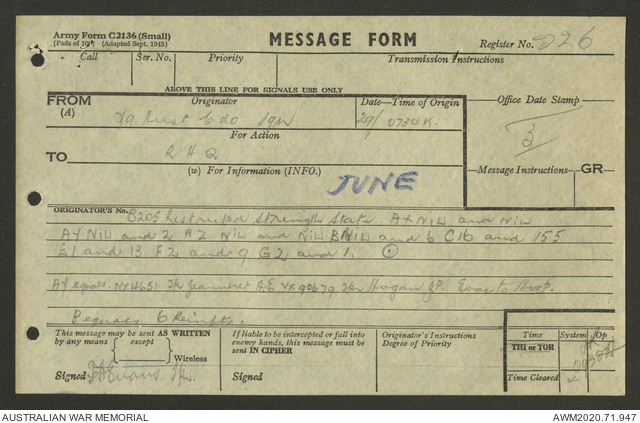 Army Form C2136 (Small)
(Pads of 100) (Adapted Sept. 1943)
MESSAGE FORM
Register No. 226
Call Ser. No. Priority Transmission Instructions
ABOVE THIS LINE FOR SIGNALS USE ONLY
FROM Originator Date—Time of Origin Office Date Stamp
(A) 2/9 Aust Cdo Sqn 29/ 0730K.
For Action 3
TO RHQ
(w) For Information (INFO.) Message Instructions GR
JUNE
ORIGINATOR'S No. B205 Restricted Strength State. AX NIL and NIL
AY NIL and 2 AZ NIL and NIL B NIL and 6 C 16 and 155
E1 and 13 F2 and 9 G2 and 1.
AY equals NX4651 Jeanneret A.E VX90679 Hogan J.P. Evac to Hosp.
B equals 6 Reinfts.
This message may be sent AS WRITTEN
by any means except Wireless
Signed
If liable to be intercepted or fall into
enemy hands, this message must be
sent IN CIPHER
Signed
Originator's Instructions
Degree of Priority
Time System Op
THI or TOR
Time Cleared
AUSTRALIAN WAR MEMORIAL AWM2020.71.947